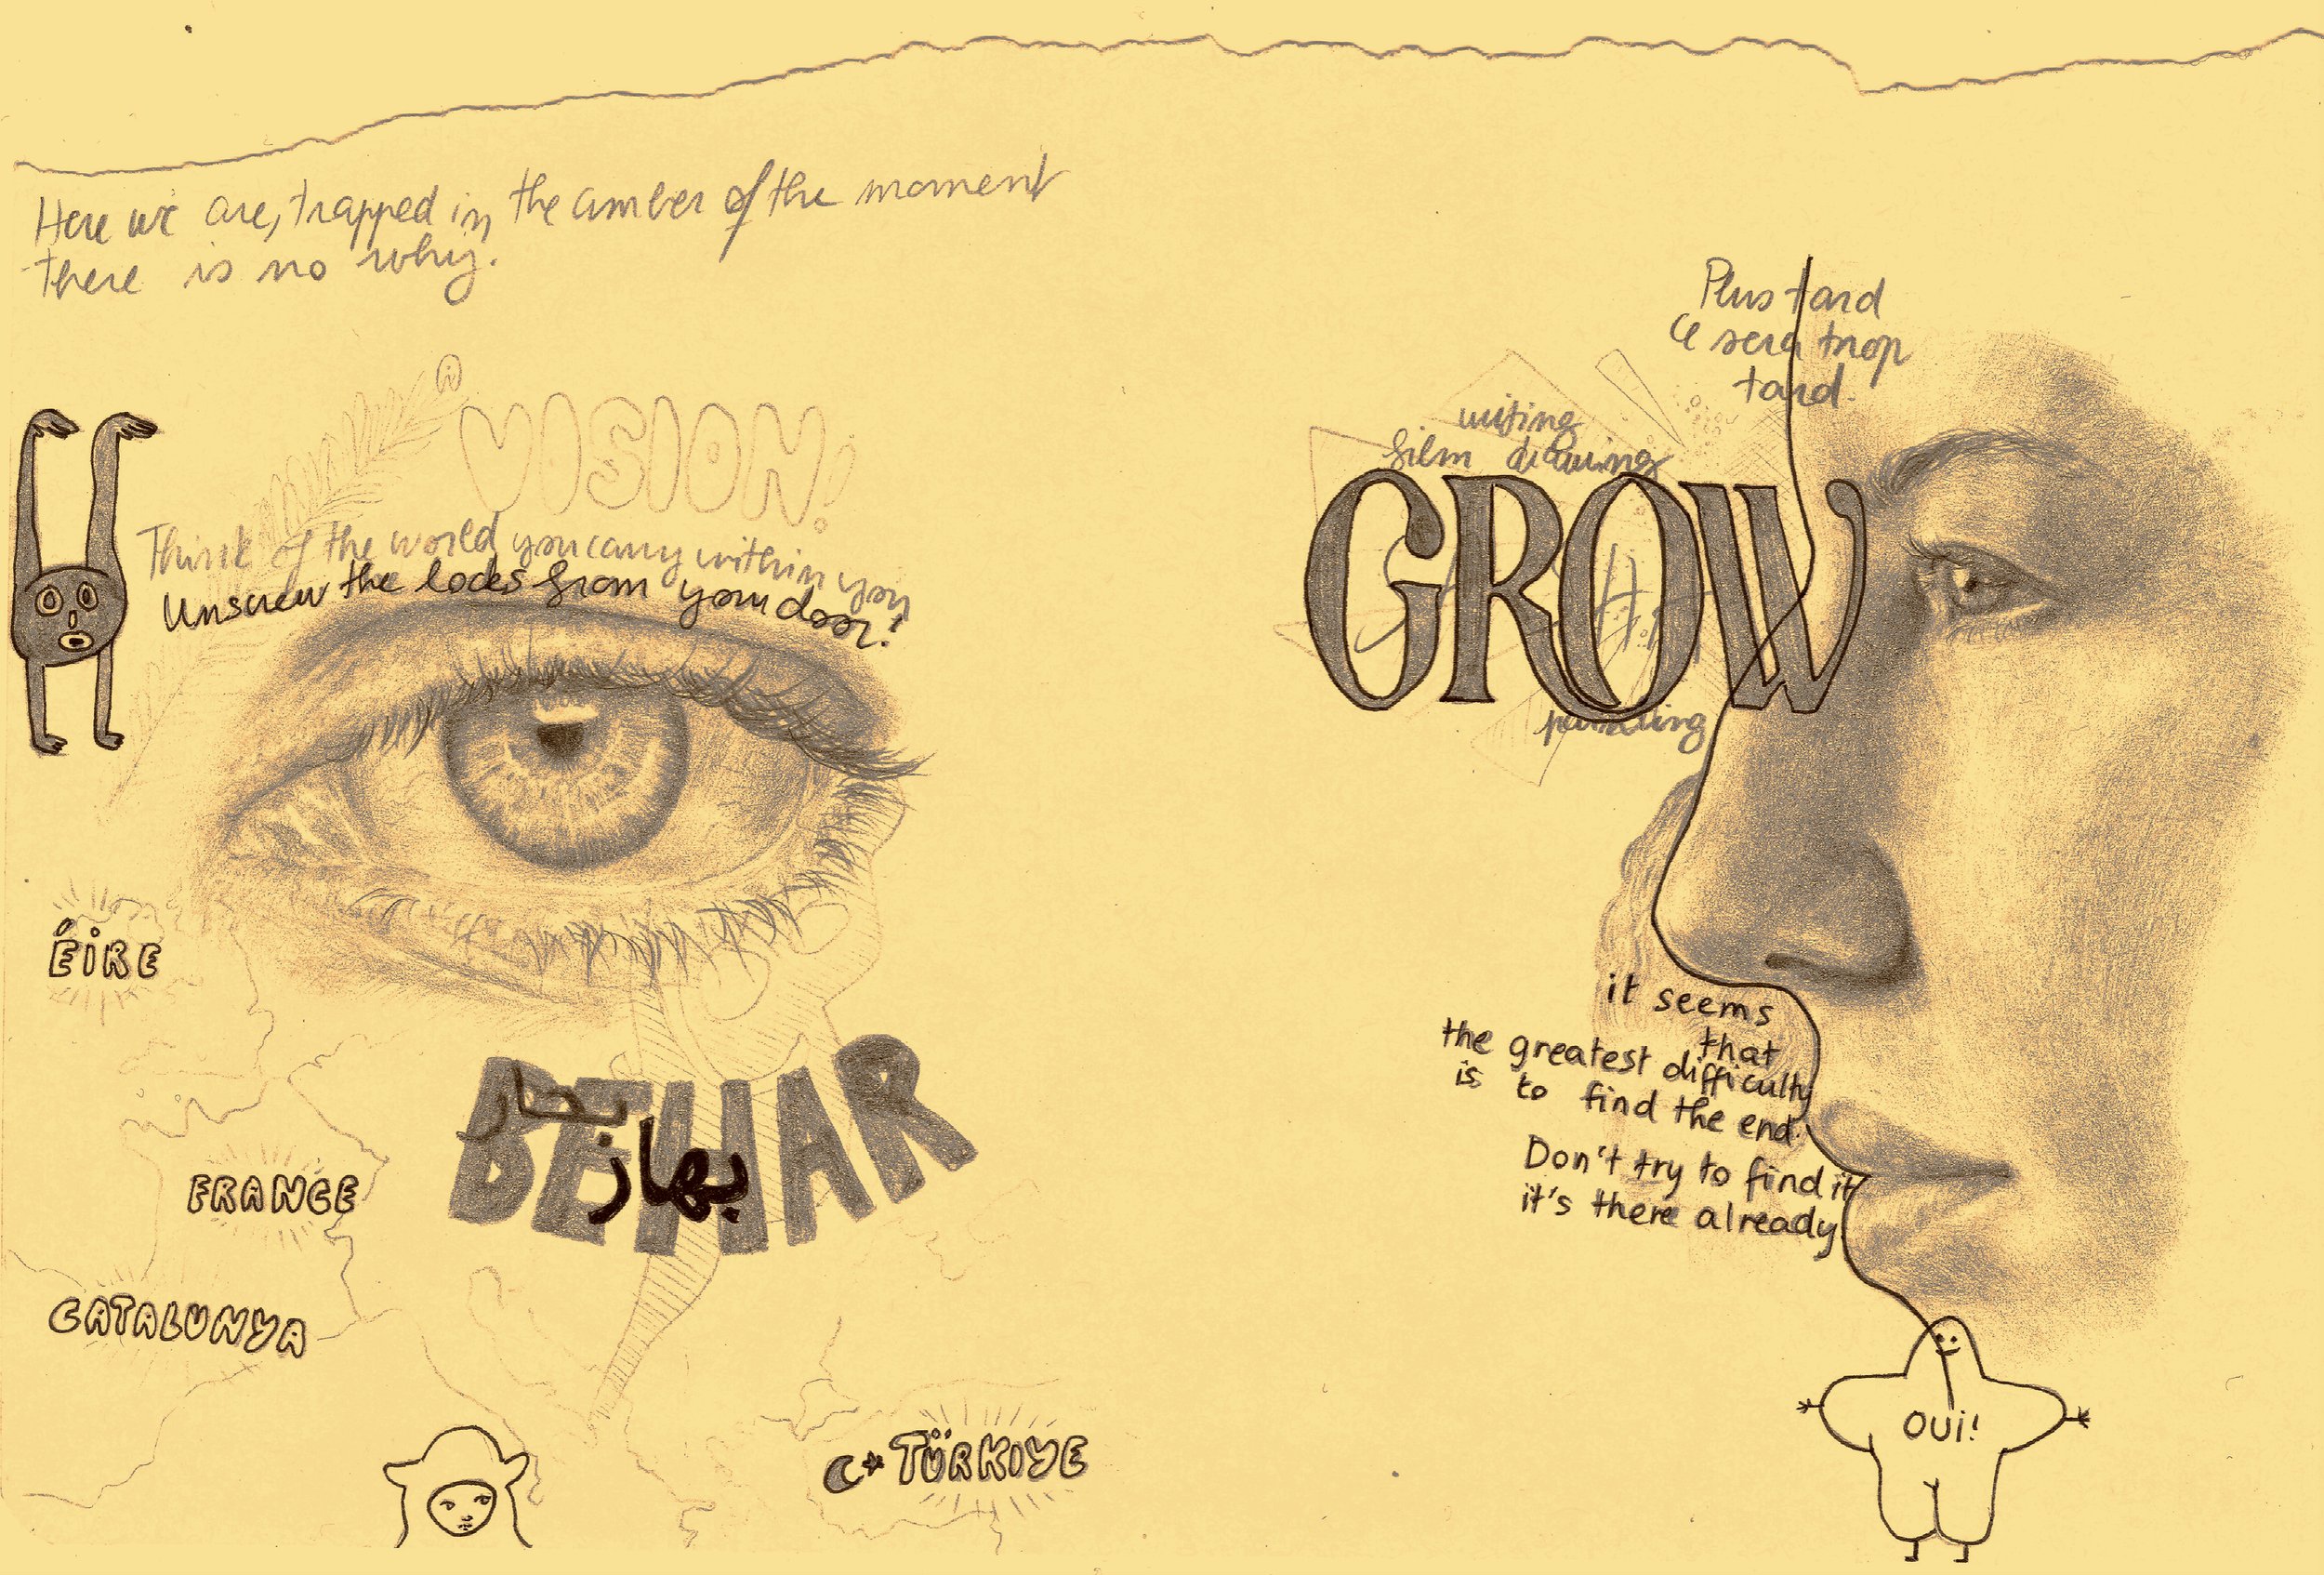 Here we are, trapped in the amber of the moment
there is no why.
VISION!
Think of the world you carry within you
Unscrew the locks from your door!
ÉIRE
FRANCE
CATALUNYA
TÜRKIYE
BEHAR
بحار
بهار
Plus tard
ce sera trop
tard.
writing
film drawing
GROW
painting
it seems
that
the greatest difficulty
is to find the end.
Don't try to find it
it's there already
OUI!